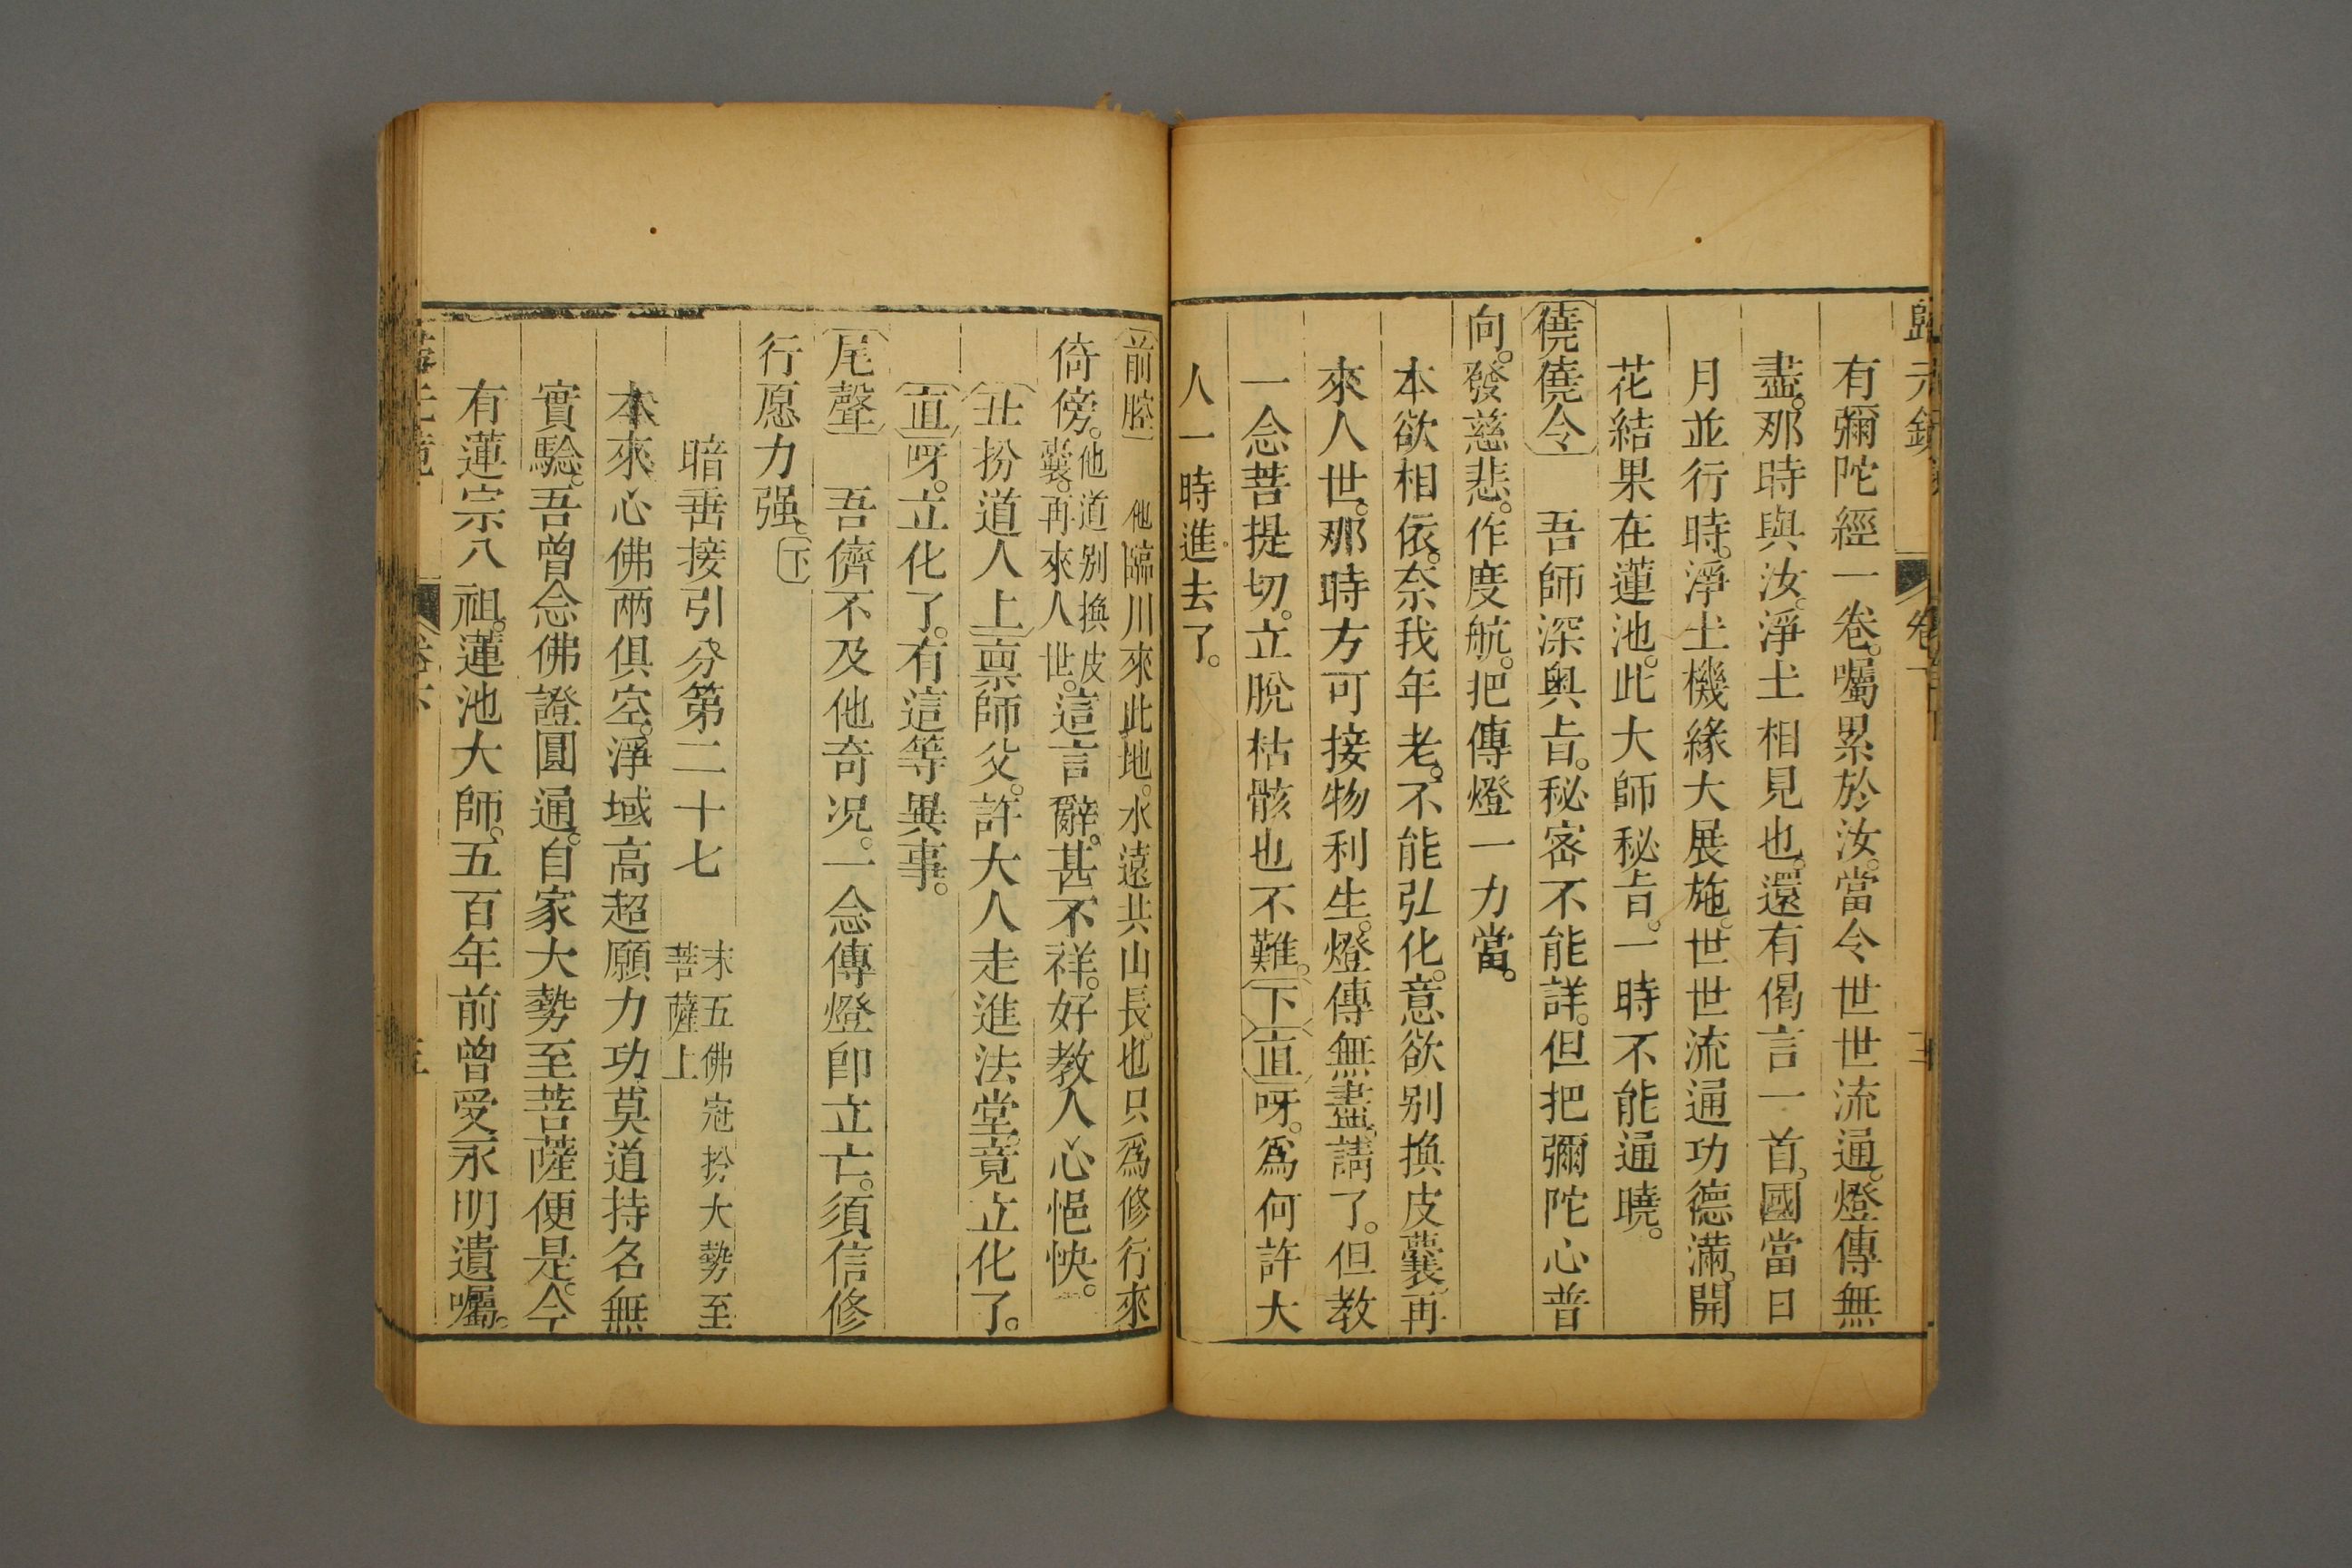 有彌陀經一卷。囑累於汝。當令世世流通。燈傳無
盡。那時與汝。淨土相見也。還有偈言一首。國當日
月並行時。淨土機緣大展施。世世流通功德滿。開
花結果在蓮池。此大師秘旨。一時不能通曉。
僥僥令 吾師深奧旨。秘密不能詳。但把彌陀心普
向。發慈悲。作度航。把傳燈一力當。
本欲相依。奈我年老。不能弘化。意欲别換皮囊。再
來人世。那時方可接物利生。燈傳無盡。請了。但教
一念菩提切。立脫枯骸也不難。下 直 呀。爲何許大
人一時進去了。
前腔 他臨川來此地。水遠共山長。也只爲修行來
倚傍。他道别換皮囊。再來人世。這言辭。甚不祥。好教人心悒怏。
丑扮道人上 禀師父。許大人走進法堂。竟立化了。
直 呀。立化了。有這等異事。
尾聲 吾儕不及他奇况。一念傳燈卽立亡。須信修
行愿力强。下
暗垂接引分第二十七 末五佛冠扮大勢至菩薩上
本來心佛兩俱空。淨域高超願力功。莫道持名無
實驗。吾曾念佛證圓通。自家大勢至菩薩便是。今
有蓮宗八祖。蓮池大師。五百年前曾受永明遺囑。
卷下